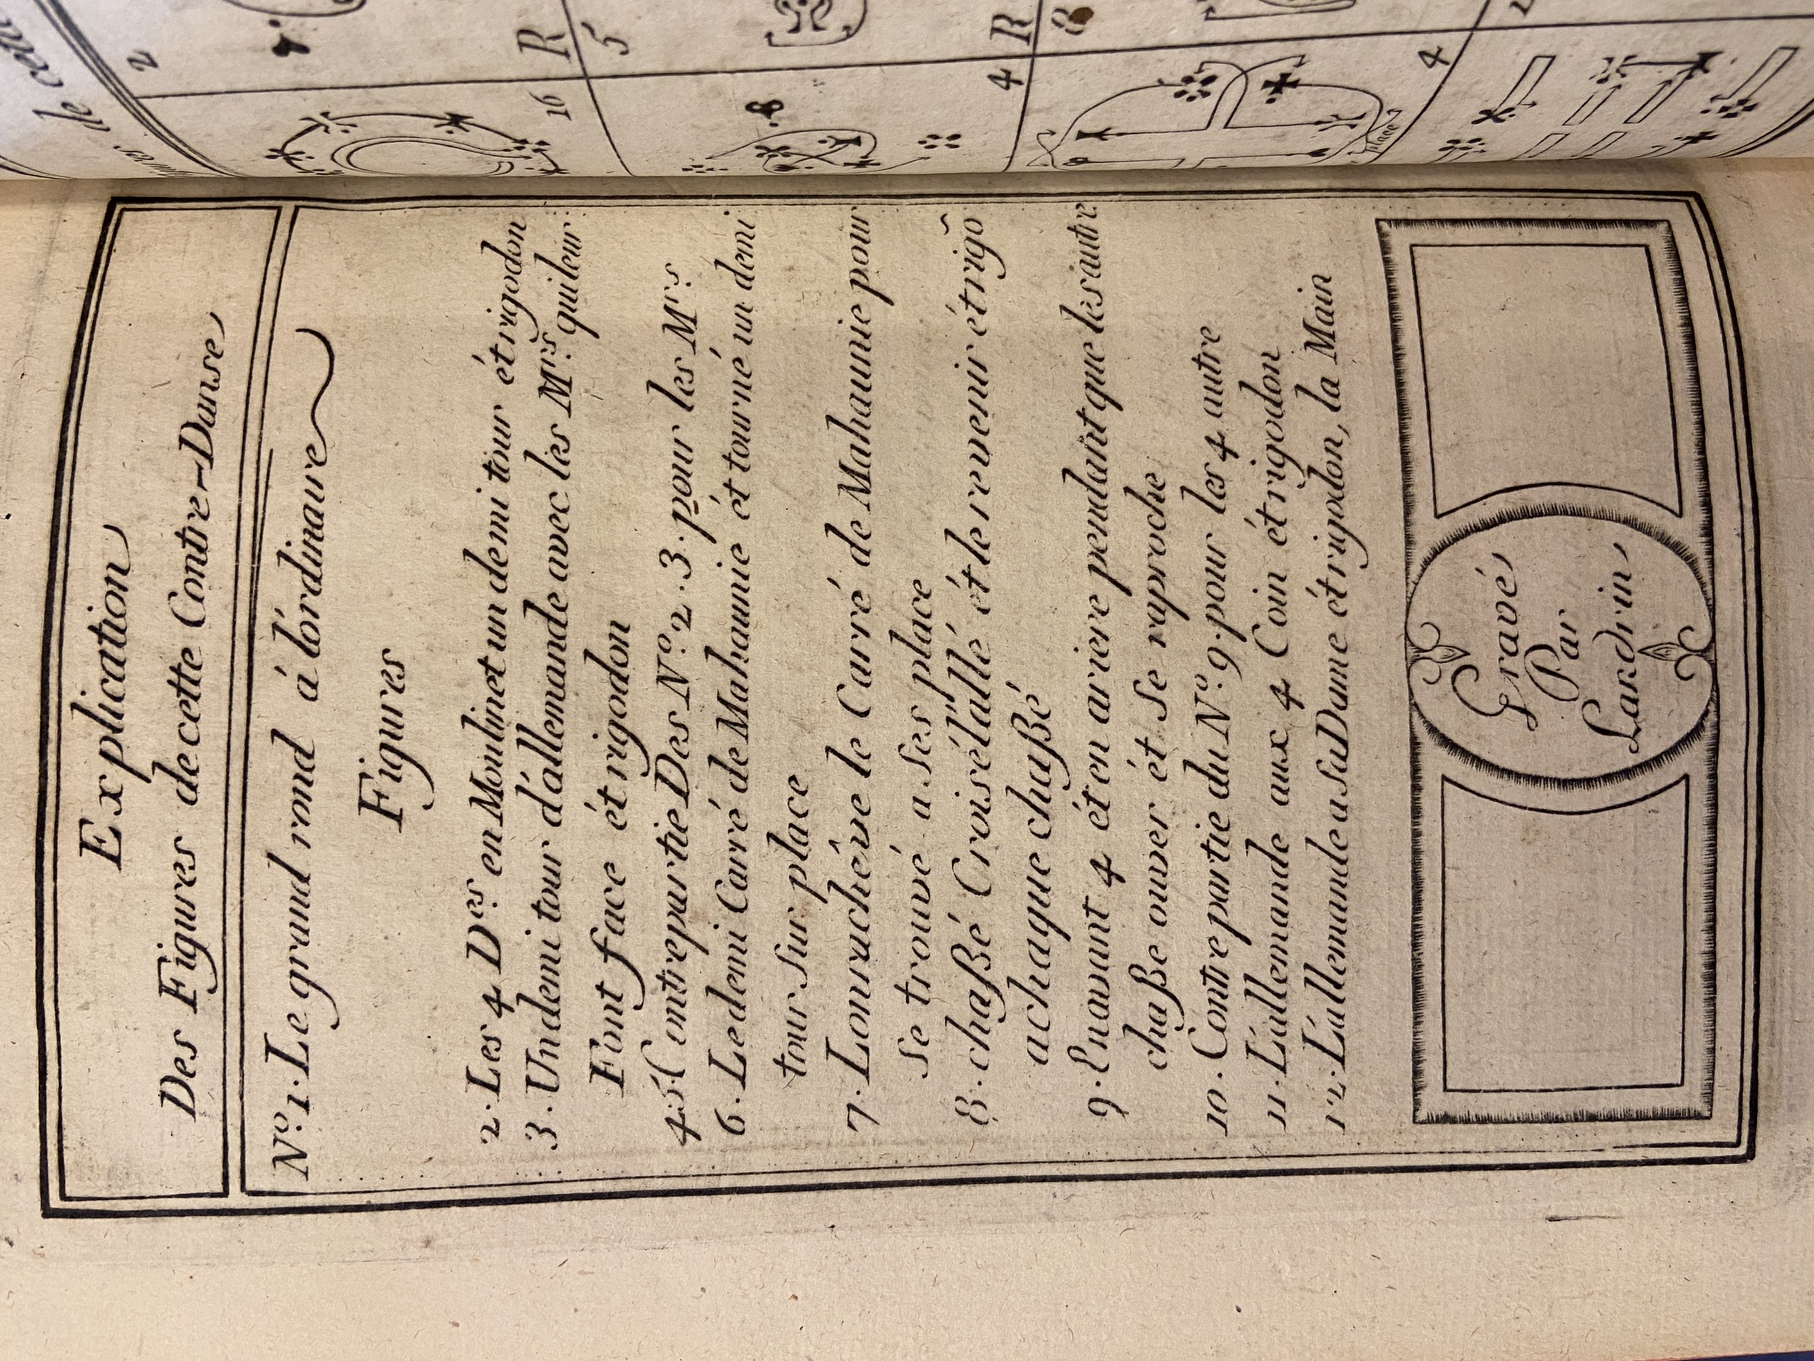 Explication
Des Figures de cette Contre-Danse
Nº. 1. Le grand rond á l'órdinaire
Figures
2. Les 4 D.es en Moulinet un demi tour ét rigodon
3. Un demi tour d'állemande avec les M.rs qui leur
Font face ét rigodon
4.5. Contrepartie Des Nº. 2. 3. pour les M.rs
6. Le demi Carré de Mahaunie ét tourné un demi
tour Sur place
7. Lon rachêve le Carré de Mahaunie pour
Se trouvé a Ses place
8. chaßé Croisé l'allé ét le revenir ét rigõ
a chaque chaßé
9. En avant 4 ét en ariere pendant que les autre
chaße ouver ét Se raproche
10. Contrepartie du Nº. 9. pour les 4 autre
11. L'állemande aux 4 Coin ét rigodon
12. L'állemande a Sa Dame ét rigodon, la Main
Gravé
Par
Landrin
de
2
16
R
5
8
4
R
8
place
4